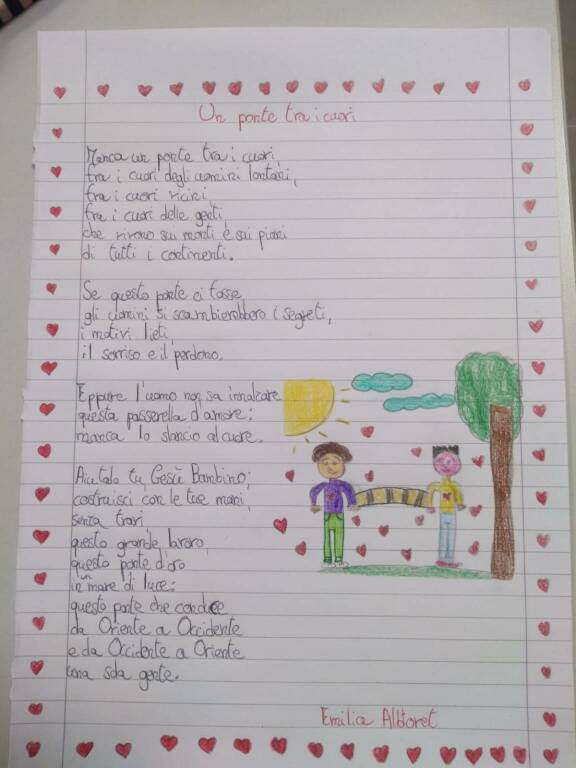 Un ponte tra i cuori
Manca un ponte tra i cuori,
tra i cuori degli uomini lontani,
tra i cuori vicini,
tra i cuori delle genti,
che vivono sui monti e sui piani
di tutti i continenti.
Se questo ponte ci fosse,
gli uomini si scambierebbero i segreti,
i motivi lieti,
il sorriso e il perdono.
Eppure l'uomo non sa innalzare
questa passerella d'amore:
manca lo slancio al cuore.
Aiutalo tu, Gesù Bambino;
costruisci con le tue mani,
senza travi
questo grande lavoro,
questo ponte d'oro
in un mare di luce:
questo ponte che conduce
da Oriente a Occidente
e da Occidente a Oriente
una sola gente.
Emilia Alboret